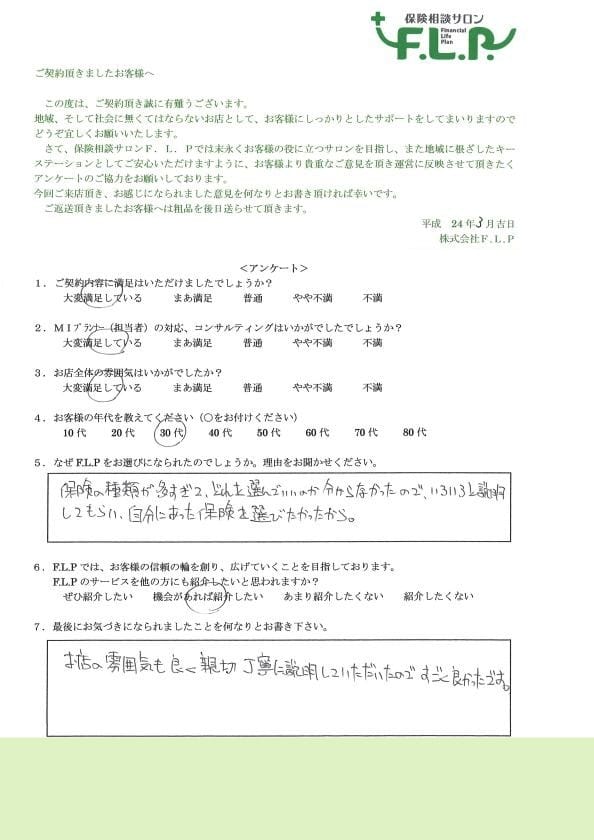 保険相談サロン
F.L.P.
Financial
Life
Plan
ご契約頂きましたお客様へ
この度は、ご契約頂き誠に有難うございます。
地域、そして社会に無くてはならないお店として、お客様にしっかりとしたサポートをしてまいりますので
どうぞ宜しくお願いいたします。
さて、保険相談サロンF．L．Pでは末永くお客様の役に立つサロンを目指し、また地域に根ざしたキー
ステーションとしてご安心いただけますように、お客様より貴重なご意見を頂き運営に反映させて頂きたく
アンケートのご協力をお願いしております。
今回ご来店頂き、お感じになられました意見を何なりとお書き頂ければ幸いです。
ご返送頂きましたお客様へは粗品を後日送らせて頂きます。
平成　24年3月吉日
株式会社F.L.P
＜アンケート＞
1．ご契約内容に満足はいただけましたでしょうか？
大変満足している　まあ満足　普通　やや不満　不満
2．MIﾌﾟﾗﾝﾅｰ（担当者）の対応、コンサルティングはいかがでしたでしょうか？
大変満足している　まあ満足　普通　やや不満　不満
3．お店全体の雰囲気はいかがでしたか？
大変満足している　まあ満足　普通　やや不満　不満
4．お客様の年代を教えてください（○をお付けください）
10代　20代　30代　40代　50代　60代　70代　80代
5．なぜF.L.Pをお選びになられたのでしょうか。理由をお聞かせください。
保険の種類が多すぎて、どれを選んでいいのか分からなかったので、いろいろと説明
してもらい、自分にあった保険を選びたかったから。
6．F.L.Pでは、お客様の信頼の輪を創り、広げていくことを目指しております。
F.L.Pのサービスを他の方にも紹介したいと思われますか？
ぜひ紹介したい　機会があれば紹介したい　あまり紹介したくない　紹介したくない
7．最後にお気づきになられましたことを何なりとお書き下さい。
お店の雰囲気も良く親切丁寧に説明していただいたのですごく良かったです。